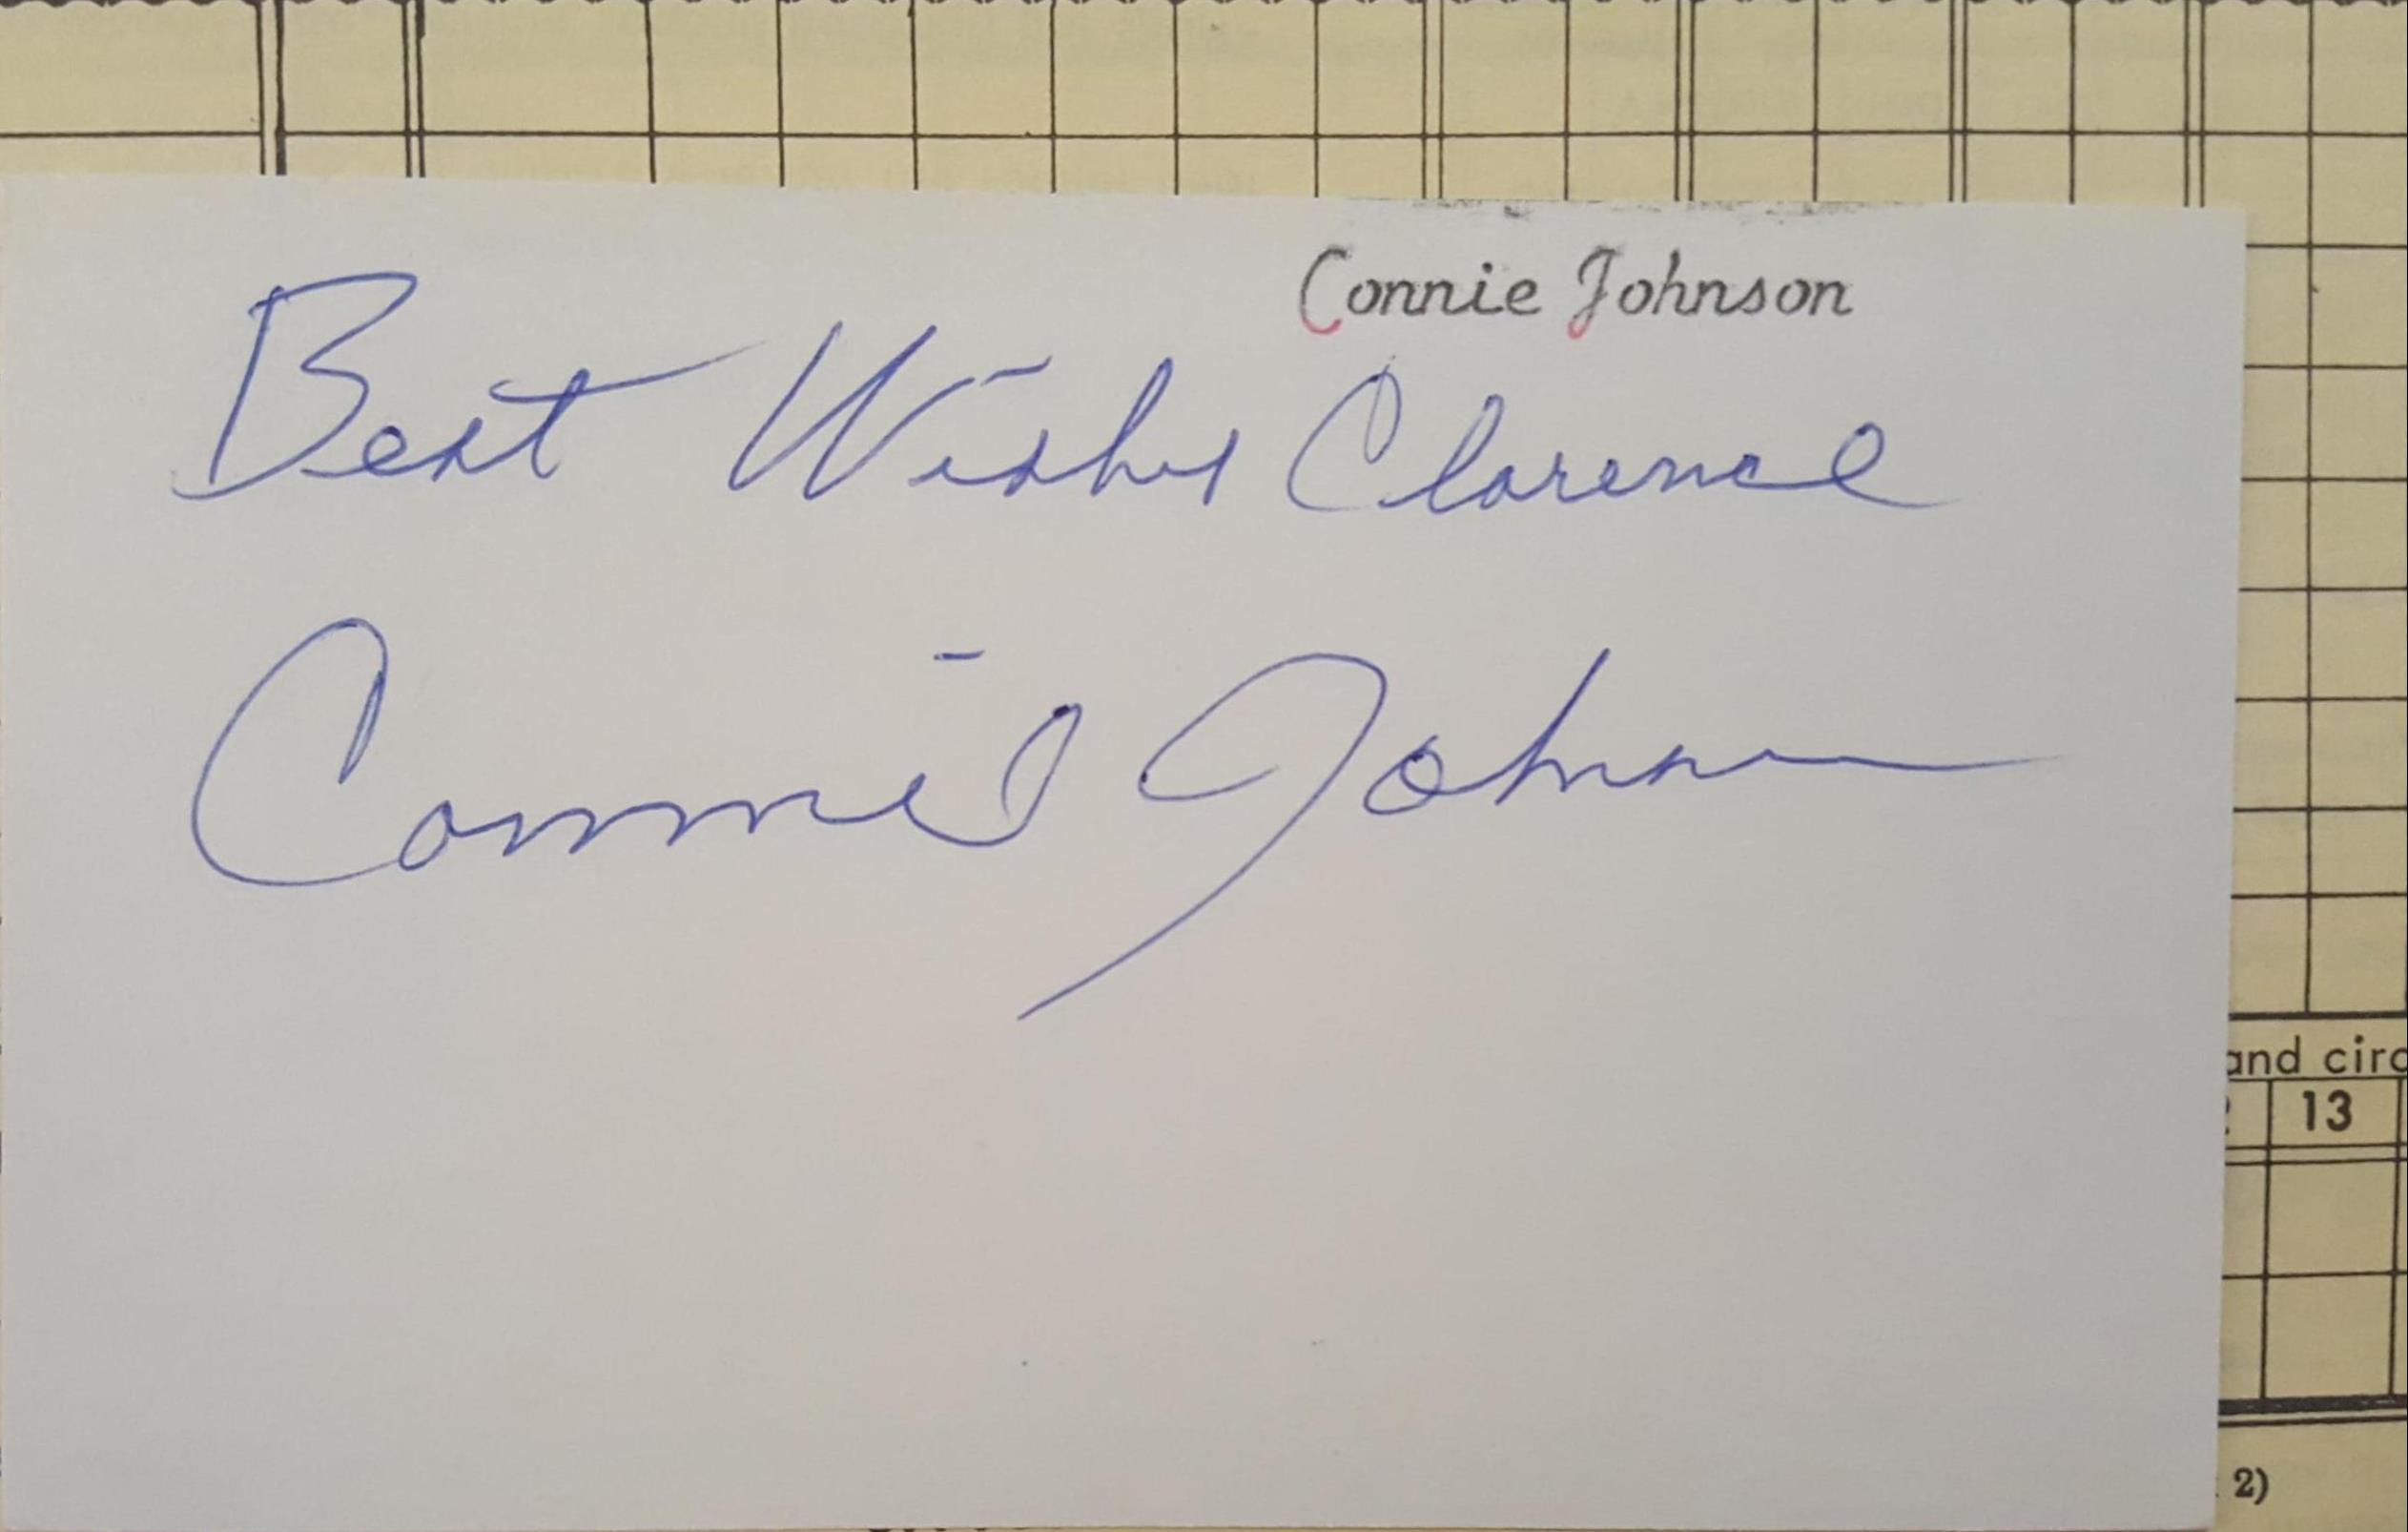 Connie Johnson
Best Wishes Clarence
Connie Johnson
and circ
13
2)